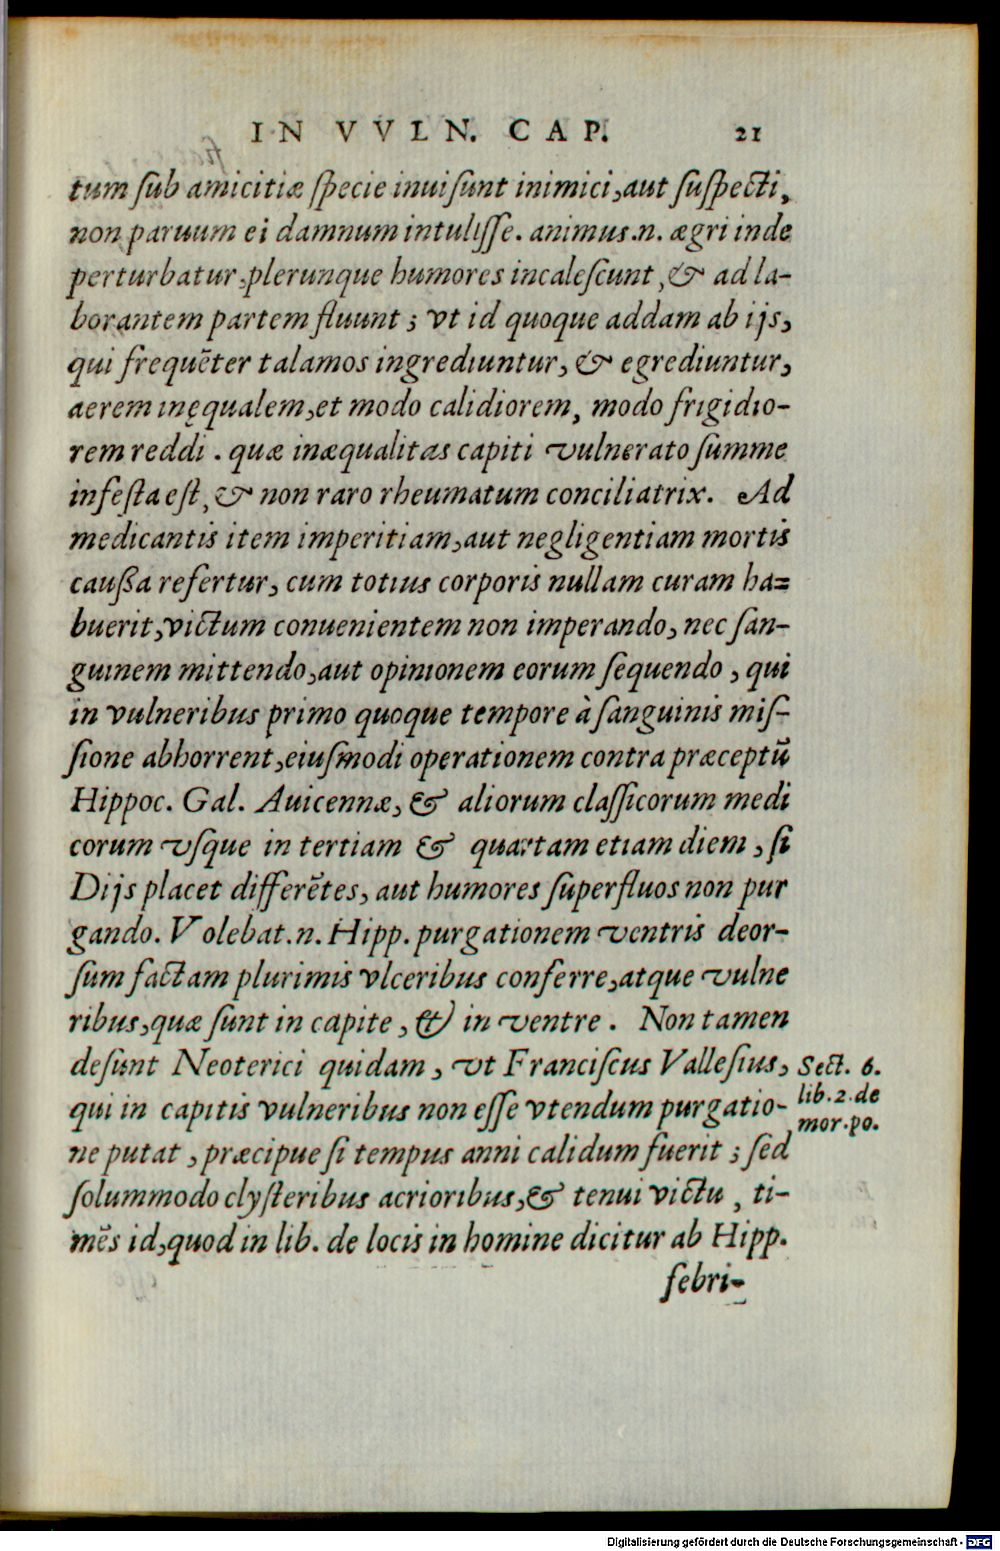 IN VVLN. CAP. 21
tum ſub amicitiæ ſpecie inuiſunt inimici, aut ſuſpecti,
non paruum ei damnum intuliſſe. animus .n. ægri inde
perturbatur, plerunque humores incaleſcunt, & ad la-
borantem partem fluunt; vt id quoque addam ab ijs,
qui frequēter talamos ingrediuntur, & egrediuntur,
aerem inęqualem, et modo calidiorem, modo frigidio-
rem reddi. quæ inæqualitas capiti vulnerato ſumme
infeſta eſt, & non raro rheumatum conciliatrix. Ad
medicantis item imperitiam, aut negligentiam mortis
cauſſa refertur, cum totius corporis nullam curam ha=
buerit, victum conuenientem non imperando, nec ſan-
guinem mittendo, aut opinionem eorum ſequendo, qui
in vulneribus primo quoque tempore à ſanguinis miſ-
ſione abhorrent, eiuſmodi operationem contra præceptū
Hippoc. Gal. Auicennæ, & aliorum claſſicorum medi
corum vſque in tertiam & quartam etiam diem, ſi
Dijs placet differētes, aut humores ſuperfluos non pur
gando. Volebat .n. Hipp. purgationem ventris deor-
ſum factam plurimis vlceribus conferre, atque vulne
ribus, quæ ſunt in capite, & in ventre. Non tamen
deſunt Neoterici quidam, vt Franciſcus Valleſius,
Sect. 6.
lib. 2. de
mor. po.
qui in capitis vulneribus non eſſe vtendum purgatio-
ne putat, præcipue ſi tempus anni calidum fuerit; ſed
ſolummodo clyſteribus acrioribus, & tenui victu, ti-
mēs id, quod in lib. de locis in homine dicitur ab Hipp.
febri-
Digitalisierung gefördert durch die Deutsche Forschungsgemeinschaft - DFG